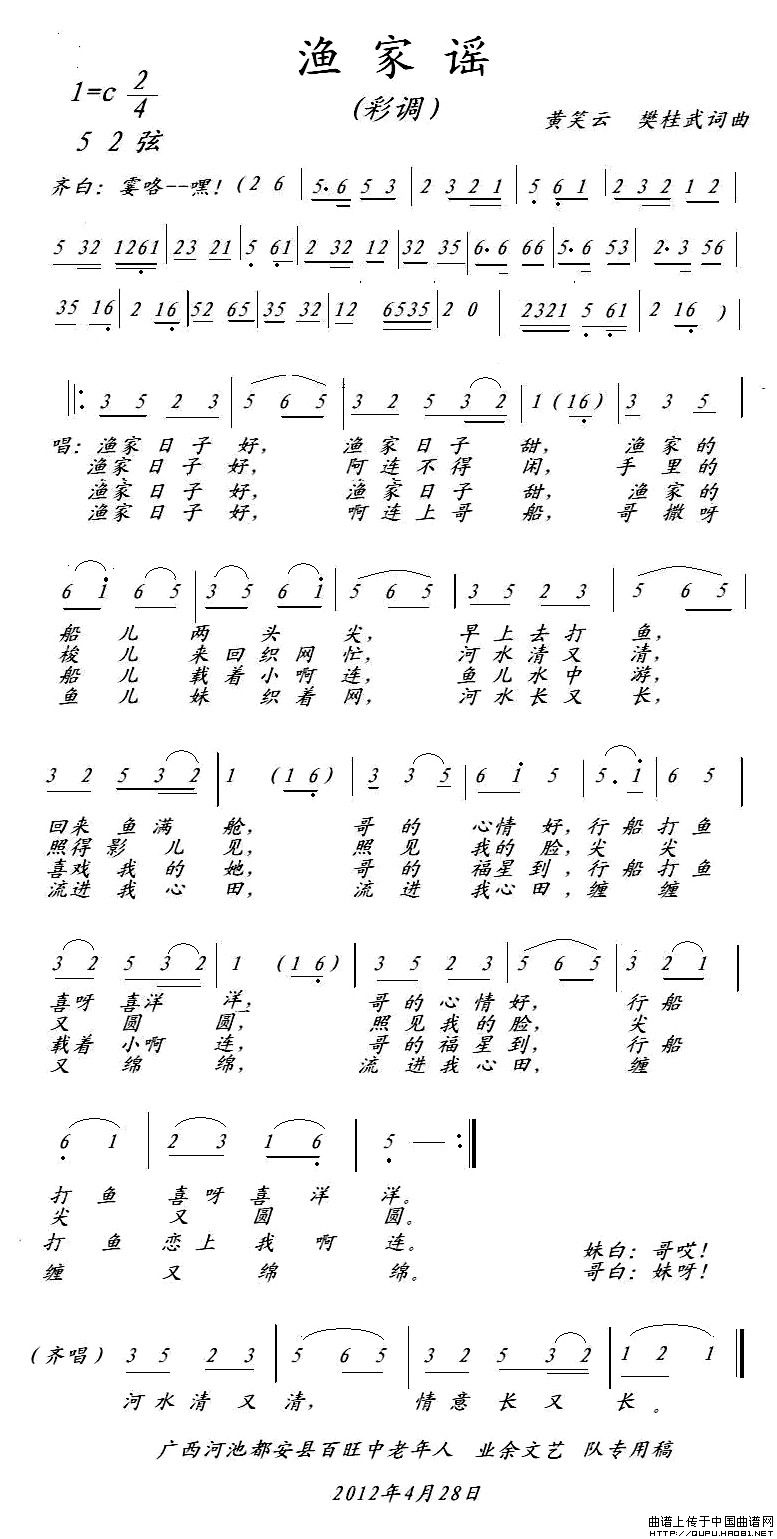 渔家谣
1=c 2/4
(彩调)
黄笑云 樊桂武词曲
5 2 弦
齐白：霎咯--嘿！(2 6 | 5. 6 5 3 | 2 3 2 1 | 5 6 1 | 2 3 2 1 2 |
5 32 1261 | 23 21 | 5 61 | 2 32 12 | 32 35 | 6. 6 66 | 5. 6 53 | 2. 3 56 |
35 16 | 2 16 | 52 65 | 35 32 | 12 6535 | 2 0 | 2321 5 61 | 2 16 ) |
||: 3 5 2 3 | 5 6 5 | 3 2 5 3 2 | 1 (16) | 3 3 5 |
唱：渔家日子好， 渔家日子甜， 渔家的
渔家日子好， 阿连不得闲， 手里的
渔家日子好， 渔家日子甜， 渔家的
渔家日子好， 啊连上哥船， 哥撒呀
6 i 6 5 | 3 5 6 i | 5 6 5 | 3 5 2 3 | 5 6 5 |
船儿两头尖， 早上去打鱼，
梭儿来回织网忙， 河水清又清，
船儿载着小啊连， 鱼儿水中游，
鱼儿妹织着网， 河水长又长，
3 2 5 3 2 | 1 (1 6) | 3 3 5 | 6 i 5 | 5. i | 6 5 |
回来鱼满舱， 哥的心情好，行船打鱼
照得影儿见， 照见我的脸，尖尖
喜戏我的她， 哥的福星到，行船打鱼
流进我心田， 流进我心田，缠缠
3 2 5 3 2 | 1 (1 6) | 3 5 2 3 | 5 6 5 | 3 2 1 |
喜呀喜洋洋， 哥的心情好， 行船
又圆圆， 照见我的脸， 尖
载着小啊连， 哥的福星到， 行船
又绵绵， 流进我心田， 缠
6 1 | 2 3 1 6 | 5 — :||
打鱼喜呀喜洋洋。
尖又圆圆。
打鱼恋上我啊连。
缠又绵绵。
妹白：哥哎！
哥白：妹呀！
(齐唱) 3 5 2 3 | 5 6 5 | 3 2 5 3 2 | 1 2 1 ||
河水清又清， 情意长又长。
广西河池都安县百旺中老年人 业余文艺 队专用稿
2012年4月28日
曲谱上传于中国曲谱网
HTTP://QUPU.HAO81.NET